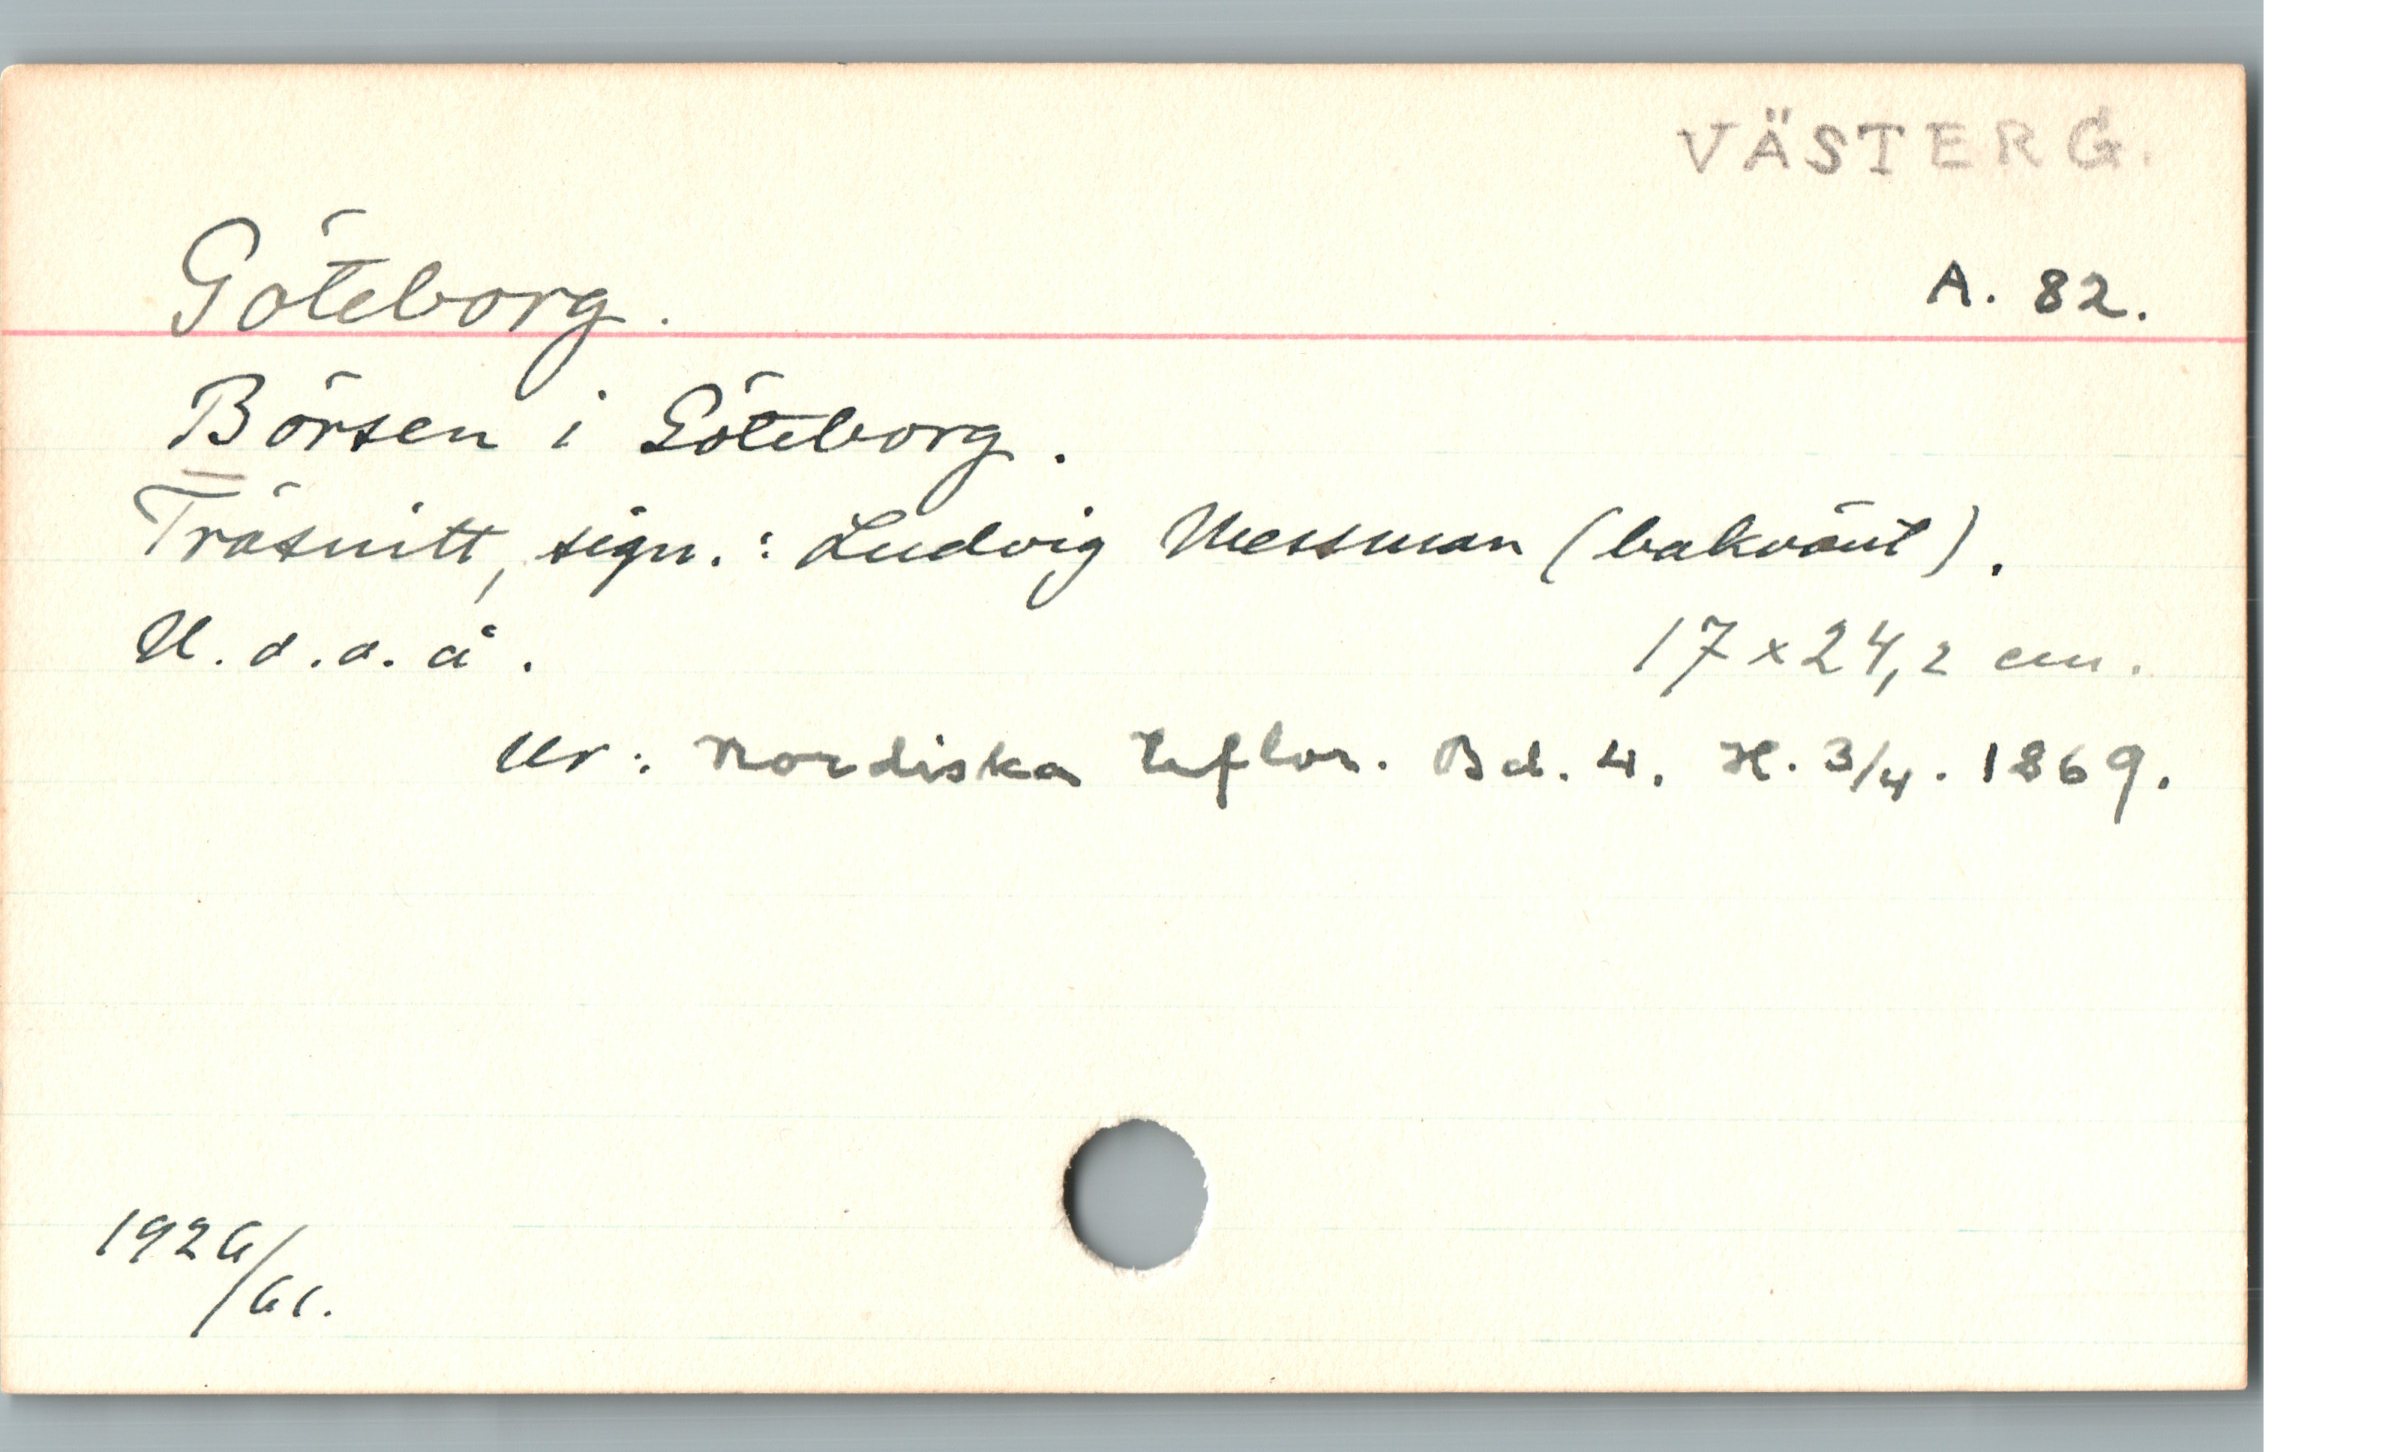 VÄSTERG.
Göteborg.
A. 82.
Börsen i Göteborg.
Träsnitt, sign.: Ludvig Messman (bakvänt).
U. o. o. å.
17 x 24,2 cm.
Ur: Nordiska taflor. Bd. 4. H. 3/4. 1869.
1926/61.